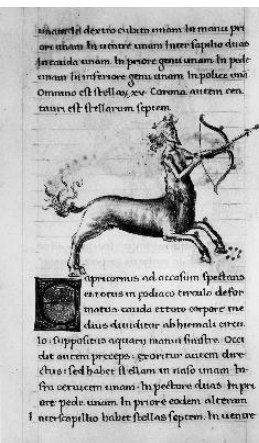 unam In dextro cubito unam. In manu pri
ore unam. In ventre unam. Inter scapilio duas
In cauda unam. In priore genu unam. In pede
unam. In inferiore genu unam. In police una
Omnino est stellaR. xv. Corona autem cen
tauri est stellarum septem
Capricornus ad occasum spectans
et totus in zodiaco circulo defor
matus. cauda et toto corpore me
dius dividitur ab hiemali circu
lo: suppositus aquarij manui sinistre. Occi
dit autem preceps: exoritur autem dire
ctus: sed habet stellam in naso unam. In
fra cervicem unam. In pectore duas. In pri
ore pede unam. In priore eodem alteram
Interscapilio habet stellas septem. In ventre